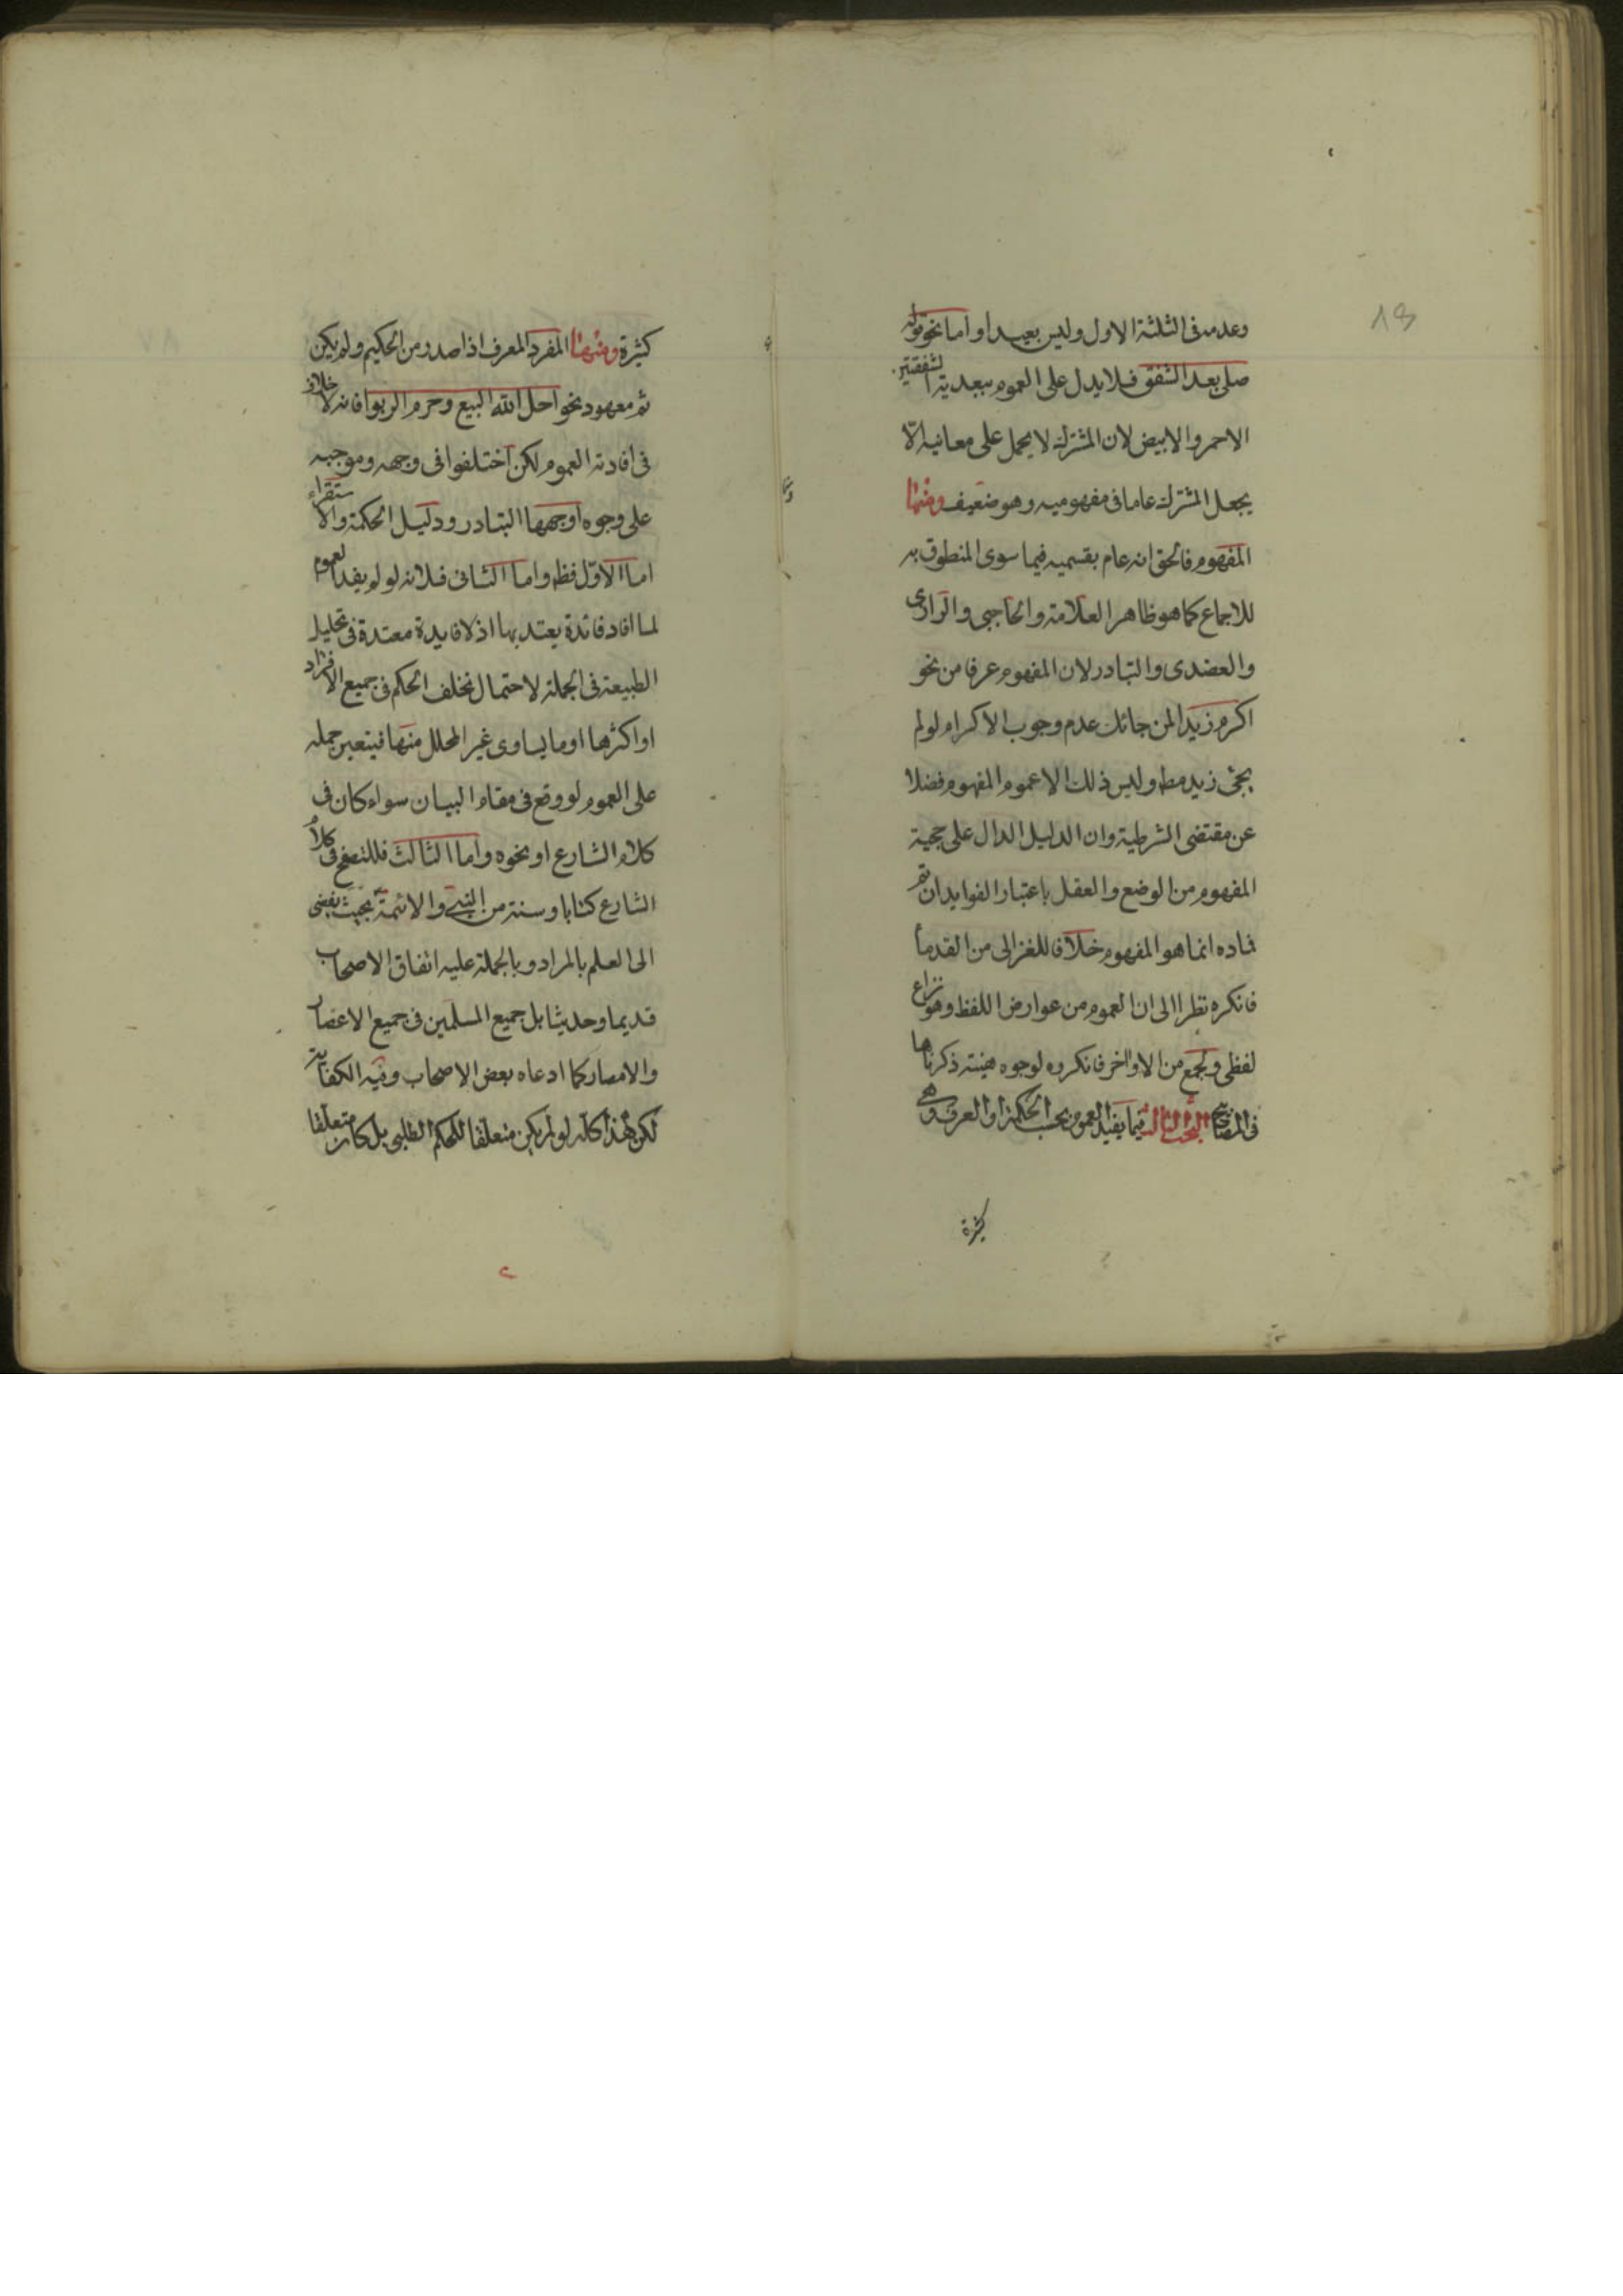 وعدمه فى الثلثة الاول وليس بعيدا واما نحو قوله
صلى بعد الشفق فلا يدل على العموم ببعدية الشفقتين
الاحمر والابيض لان المشترك لا يحمل على معانيه الّا
يجعل المشترك عاما فى مفهوميه وهو ضعيف ومنها
المفهوم فالحق انه عام بقسميه فيما سوى المنطوق به
للاجماع كما هو ظاهر العلامة والحاجبى والرازى
والعضدى والتبادر لان المفهوم عرفا من نحو
اكرم زيدا لمن جائك عدم وجوب الاكرام لو لم
يجئ زيد مط وليس ذلك الا عموم المفهوم فضلا
عن مقتضى الشرطية وان الدليل الدال على حجية
المفهوم من الوضع والعقل باعتبار الفوايد ان تم
فاده انما هو المفهوم خلافا للغزالى من القدمأ
فانكره نظرا الى ان العموم من عوارض اللفظ وهو نزاع
لفظى ولجمع من الاواخر فانكروه لوجوه هينة ذكرناها
فى المصابيح البحث الثالث فيما يفيد العموم بحسب الحكمة او العرف وهى
كثيرة
كثيرة ومنها المفرد المعرف اذا صدر من الحكيم ولم يكن
ثم معهود نحو احل الله البيع وحرم الربوا فانه لا خلاف
فى افادته العموم لكن اختلفوا فى وجهه وموجبه
على وجوه اوجهها التبادر ودليل الحكمة والاستقراء
اما الاوّل فظ واما الثانى فلانه لو لم يفد العموم
لما افاد فائدة يعتد بها اذ لا فايدة معتدة فى تحليل
الطبيعة فى الجملة لاحتمال تخلف الحكم فى جميع الافراد
او اكثرها او ما يساوى غير المحلل منها فيتعين حمله
على العموم لو وقع فى مقام البيان سواء كان فى
كلام الشارع او نحوه واما الثالث فللتصفح فى كلام
الشارع كتابا وسنة من النبى والائمة بحيث يفضى
الى العلم بالمراد وبالجملة عليه اتفاق الاصحاب
قديما وحديثا بل جميع المسلمين فى جميع الاعصار
والامصار كما ادعاه بعض الاصحاب وفيه الكفاية
لكن هذا كله لو لم يكن متعلقا للحكم الطلبى بل كان متعلقا